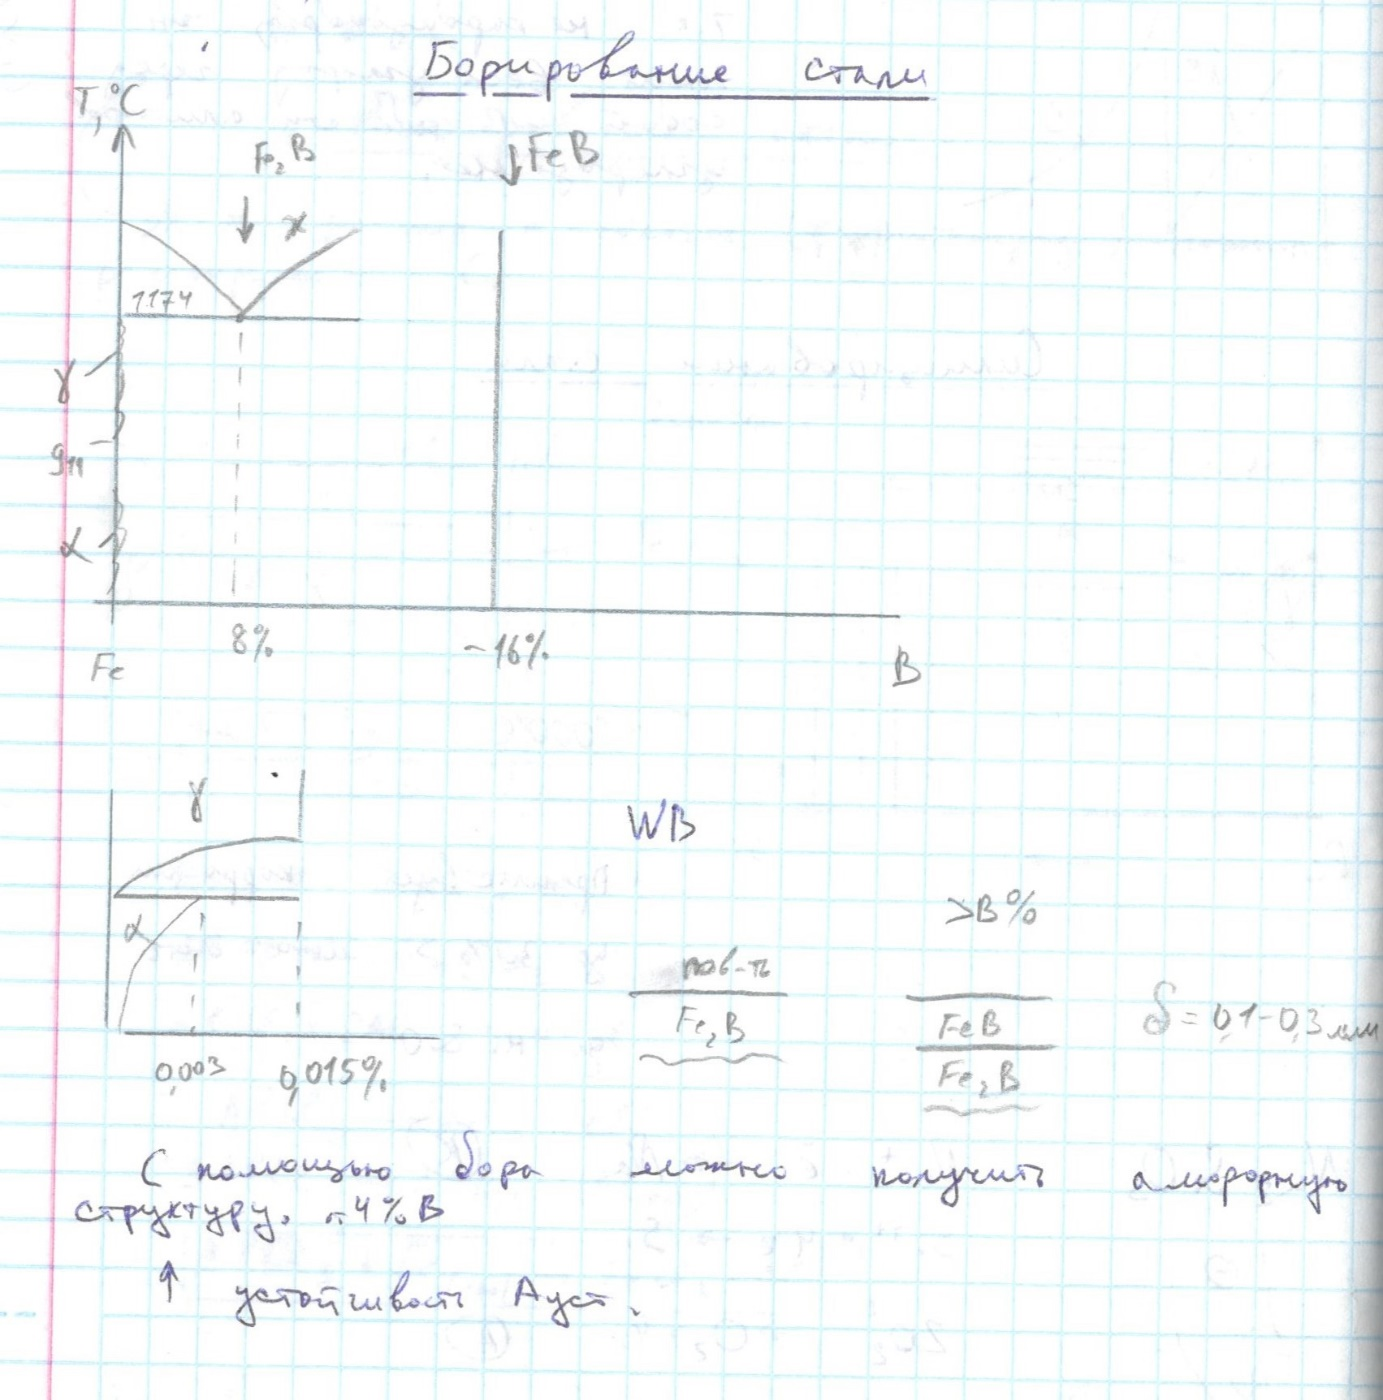 Борирование стали
T,°C
Fe₂B
↓FeB
ж
1174
γ
911
α
8%
~16%
Fe
B
γ
WB
>B%
α
пов-ть
Fe₂B
FeB
Fe₂B
δ = 0,1-0,3 мм
0,003
0,015%
С помощью бора можно получить аморфную
структуру. ~4% B
↑ устойчивость Ауст.